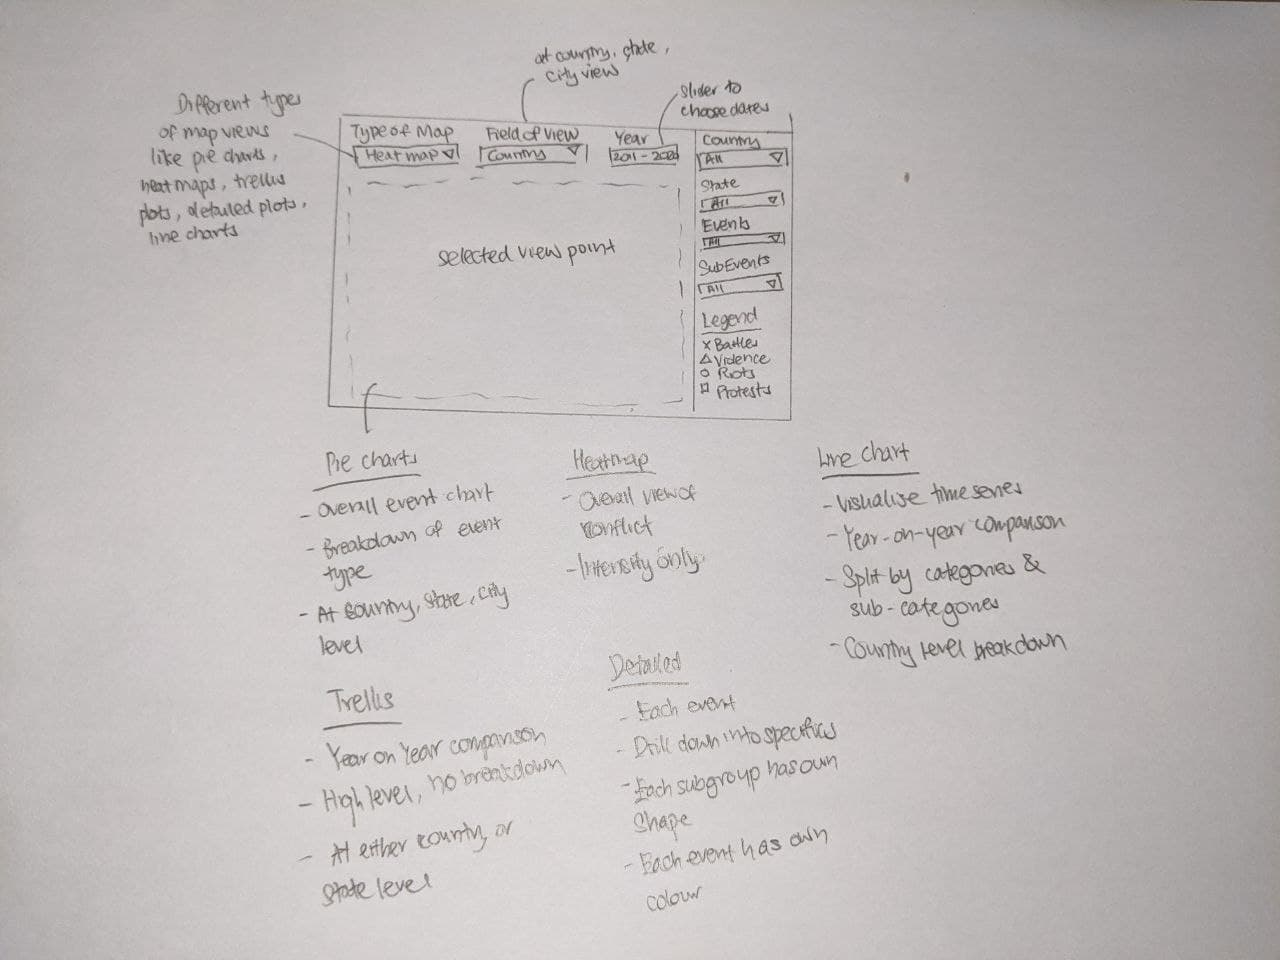 at country, state,
city view
Slider to
choose dates
Different types
of map views
like pie charts,
heatmaps, trellis
plots, detailed plots,
line charts
Type of Map
Heat map
Field of View
Country
Year
2011 - 2020
Country
All
State
All
Events
All
SubEvents
All
Legend
x Battles
△ Violence
○ Riots
□ Protests
selected view point
Pie charts
- Overall event chart
- Breakdown of event
type
- At Country, state, city
level
Heatmap
- Overall view of
conflict
- Intensity only
Line chart
- Visualise time series
- Year-on-year comparison
- Split by categories &
sub-categories
- Country level breakdown
Trellis
- Year on Year comparison
- High level, no breakdown
- At either country, or
state level
Detailed
- Each event
- Drill down into specifics
- Each subgroup has own
shape
- Each event has own
colour